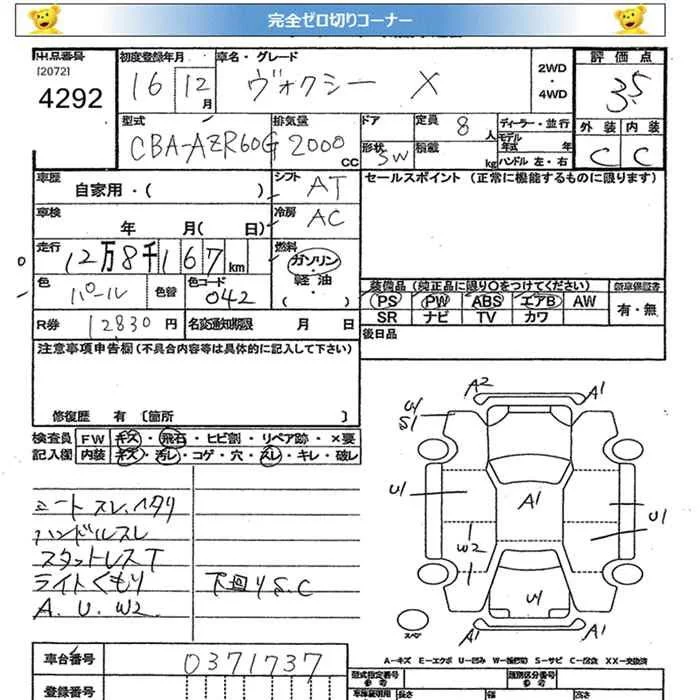 完全ゼロ切りコーナー
出品番号 初度登録年月 車名・グレード 評価点
[2072]
4292 16 12月 ヴォクシー X 2WD・4WD 3.5
型式 排気量 ドア 定員 8人 ディーラー・並行 外装 内装
CBA-AZR60G 2000cc 形状 SW 積載 kg モデル年式 年 ハンドル 左・右 C C
車歴 自家用・( ) シフト AT セールスポイント (正常に機能するものに限ります)
車検 年 月( 日) 冷房 AC
走行 12万8千167km 燃料 ガソリン・軽油・( )
色 パール 色替 色コード 042 装備品 (純正品に限り○をつけてください) 新車保証書
PS PW ABS エアB AW 有・無
SR ナビ TV カワ
R券 12830円 名変通知期限 月 日 後日品
注意事項申告欄(不具合内容等は具体的に記入して下さい)
修復歴 有 〔箇所 〕
検査員記入欄 FW キズ・飛石・ヒビ割・リペア跡・×要
内装 キズ・汚レ・コゲ・穴・スレ・キレ・破レ
シートスレ、ヘタリ
ハンドルスレ
スタットレスT
ライトくもり 下回りS.C
A. U. W2
A2 A1
U1
S1
U1 A1 U1
W2
U1
A1 A1
スペア
A-キズ E-エクボ U-凹み W-補修跡 S-サビ C-腐食 XX-交換済
車台番号 0371737 型式指定番号 類別区分番号
登録番号 参考 長さ 幅 高さ